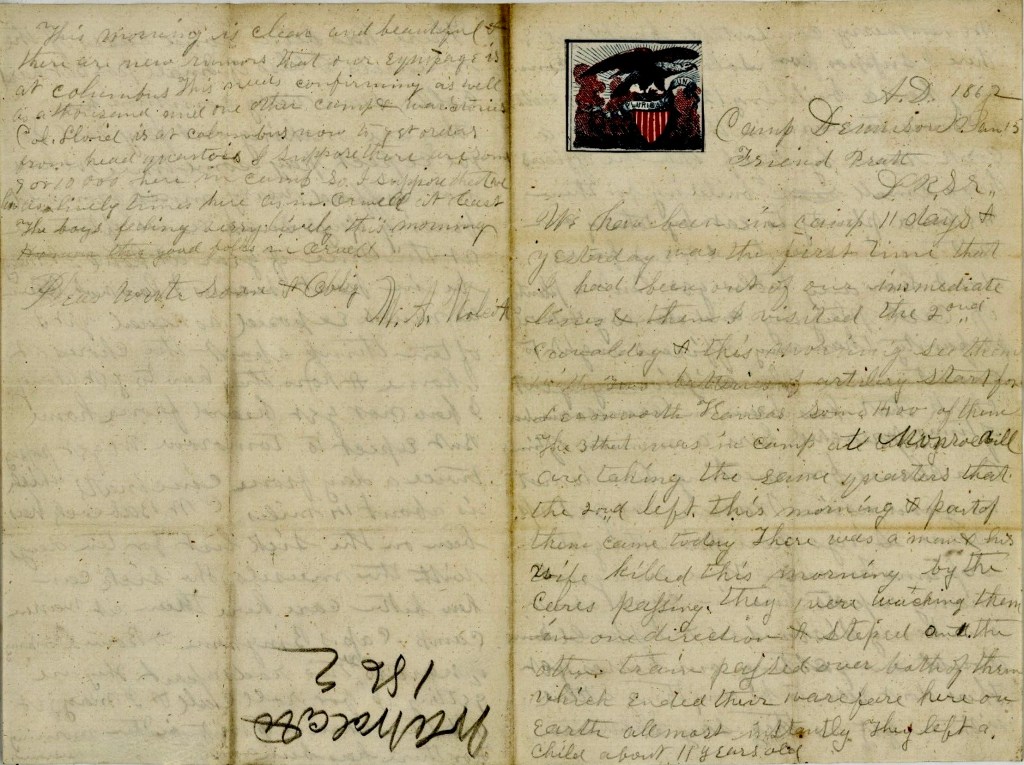 A.D. 1862
Camp Dennison Jan 15
Friend Pratt
D. R. Sir,,
We have been in camp 11 days &
yesterday was the first time that
I had been out of our immediate
lines & then I visited the 2ond
cavalry & this morning see them
with two batteries of artilery start for
Leavenworth Kansas some 1400 of them
The 3 that was in camp at Monroevill
are taking the same quarters that
the 2ond left this morning & part of
them came today There was a man & his
wife killed this morning by the
cares passing. they were waching them
in one direction & steped on the
other train passed over both of them
which ended their warefare here on
Earth allmost instantly They left a
child about 11 years old
This morning is clear and beautiful &
there are new rumors that our equipage is
at columbus This needs confirming as well
as a thousand and one other camp & war stories
is at columbus now to get orders
from head quarters I suppose there are some
9 or 10 000 here in camp So I suppose that
lively times here as in Orwell at least
The boys feeling verry lively this morning
the good folks in Orwell
Pleas write soon & Oblige
1862